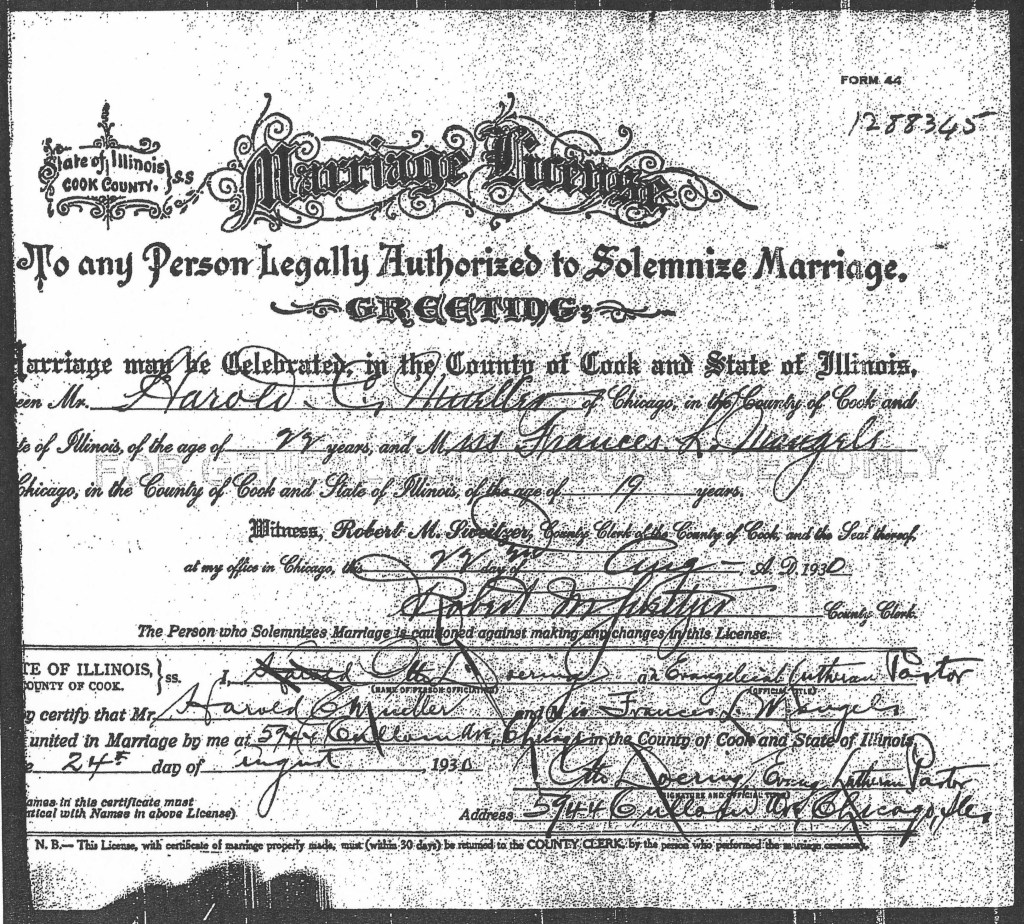 FORM 44
1288345
State of Illinois
COOK COUNTY. } SS
Marriage License
To any Person Legally Authorized to Solemnize Marriage.
GREETING:
arriage may be Celebrated, in the County of Cook and State of Illinois,
een Mr. Harold C. Mueller of Chicago, in the County of Cook and
te of Illinois, of the age of 22 years, and Miss Frances L. Mangels
Chicago, in the County of Cook and State of Illinois, of the age of 19 years.
Witness, Robert M. Sweitzer, County Clerk of the County of Cook, and the Seal thereof,
at my office in Chicago, this 22nd day of Aug A. D. 1930
Robert M Sweitzer County Clerk.
The Person who Solemnizes Marriage is cautioned against making any changes in this License.
TE OF ILLINOIS, } ss. I, Harold Otto Doering an Evangelical Lutheran Pastor
OUNTY OF COOK. (NAME OF PERSON OFFICIATING) (OFFICIAL TITLE)
y certify that Mr. Harold C Mueller and Miss Frances L. Mangels
united in Marriage by me at 5944 Cullom Ave, Chicago in the County of Cook and State of Illinois,
e 24th day of August, 1930
Otto Doering Evang Lutheran Pastor
(SIGNATURE AND OFFICIAL TITLE)
ames in this certificate must
tical with Names in above License)
Address 5944 Cullom Ave Chicago, Ills
N. B.— This License, with certificate of marriage properly made, must (within 30 days) be returned to the COUNTY CLERK, by the person who performed the marriage ceremony.